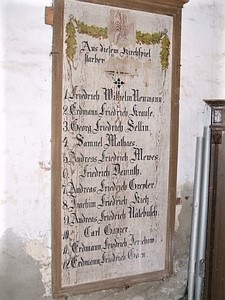 Aus diesem Kirchspiel
starben
1. Friedrich Wilhelm Neumann
2. Erdmann Friedrich Krause
3. Georg Friedrich Sellin
4. Samuel Mathaes
5. Andreas Friedrich Mewes
6. Friedrich Demuth
7. Andreas Friedrich
8. Joachim Friedrich
9. Andreas Friedrich
10. Carl
11. Erdmann Friedrich Jerichow
12. Erdmann Friedrich